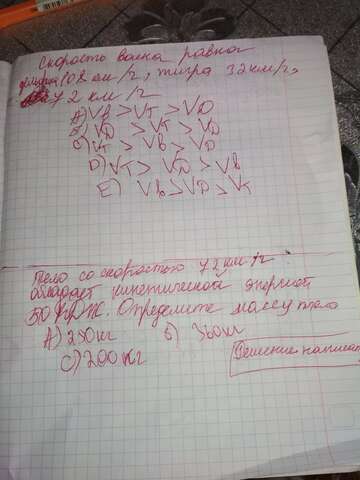 Скорость волка равна
108 км/г, тигра 32 км/г,
72 км/г
A) Vв > Vт > VD
VD > Vт > VD
C) Vт > Vв > VD
D) Vт > VD > Vв
E) Vв > VD > Vт
Тело со скоростью 72 км/г
обладает кинетической энергией
50 КДж. Определите массу тела
A) 250 кг б) 360 кг
C) 200 кг
Решение написат